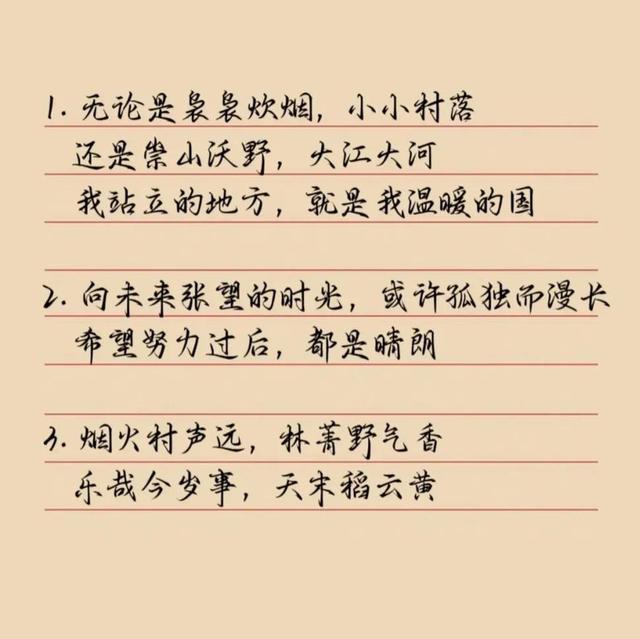 1. 无论是袅袅炊烟，小小村落
还是崇山沃野，大江大河
我站立的地方，就是我温暖的国
2. 向未来张望的时光，或许孤独而漫长
希望努力过后，都是晴朗
3. 烟火村声远，林菁野气香
乐哉今岁事，天末稻云黄